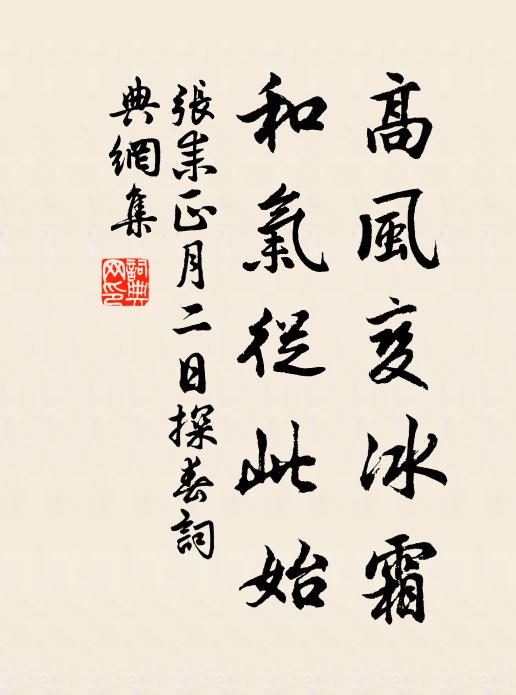 高風变冰霜
和氣從此始
張耒正月二日探春詞
典網集
詞典
网印